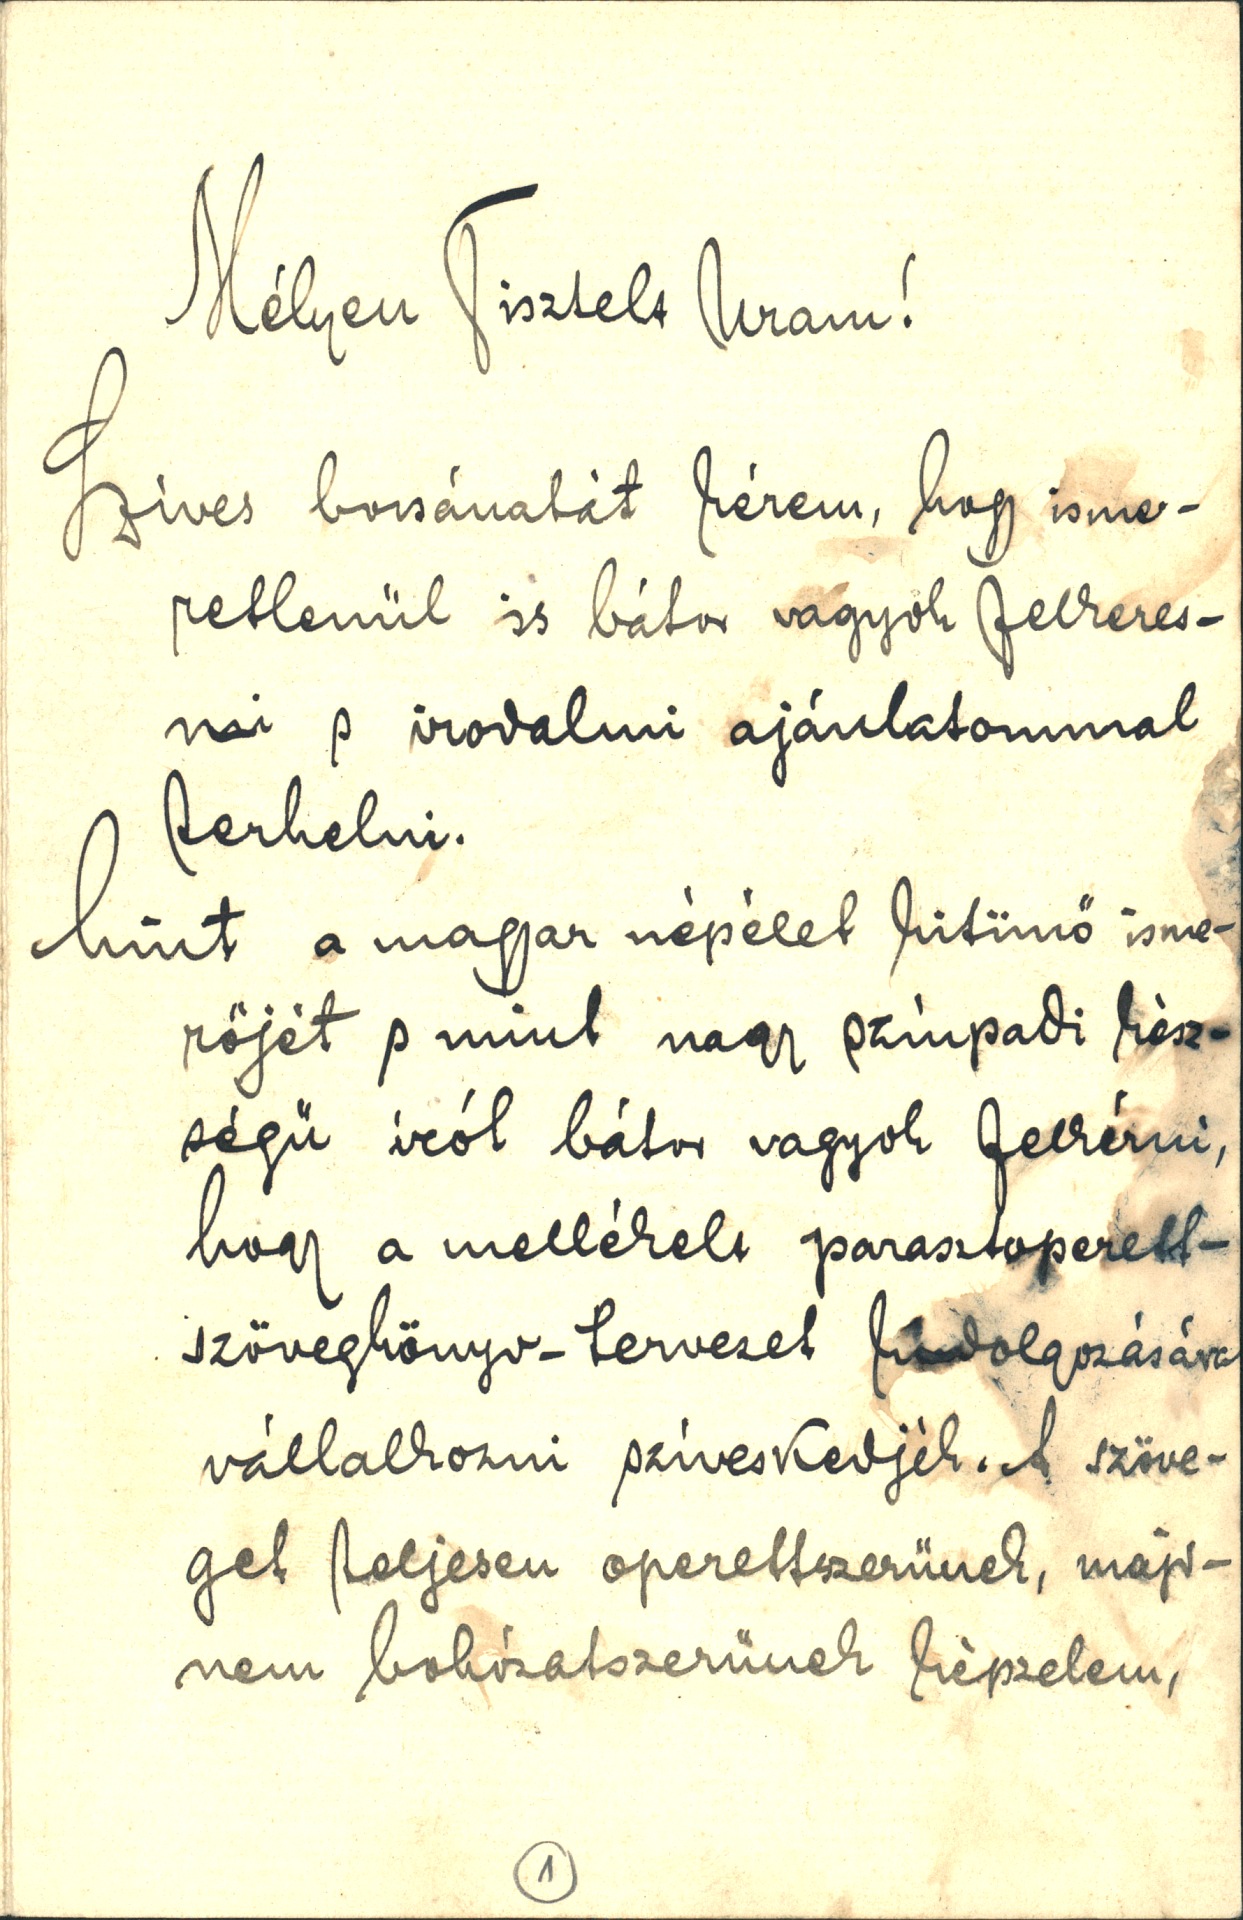 Mélyen Tisztelt Uram!
Szíves bocsánatát kérem, hogy isme-
retlenül is bátor vagyok felkeres-
ni s irodalmi ajánlatommal
terhelni.
Mint a magyar népélet kitünő isme-
rőjét s mint nagy színpadi kész-
ségü írót bátor vagyok felkérni,
hogy a mellékelt parasztoperett-
szövegkönyv-tervezet kidolgozására
vállalkozni szíveskedjék. A szöve-
get teljesen operettszerünek, majd-
nem bohózatszerünek képzelem,
1